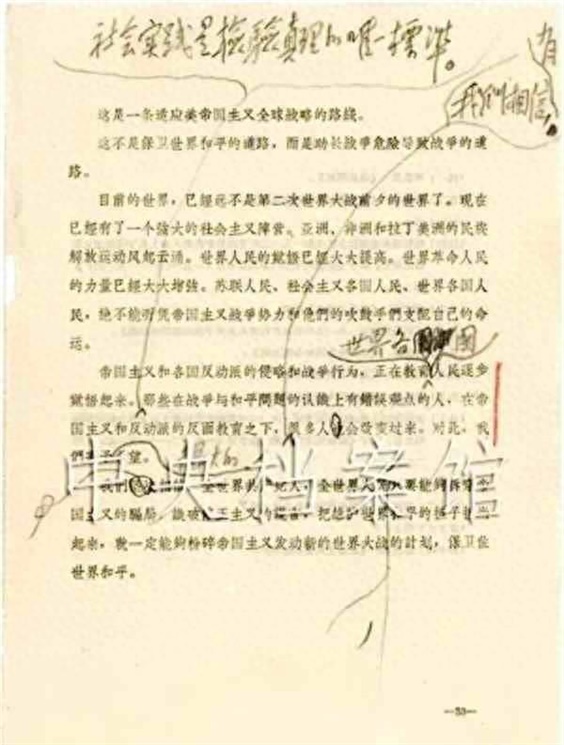 社会实践是检验真理的唯一标准。
有
我们相信，
这是一条适应美帝国主义全球战略的路线。
这不是保卫世界和平的道路，而是助长战爭危险导致战爭的道
路。
目前的世界，已經远不是第二次世界大战前夕的世界了。现在
已經有了一个強大的社会主义陣营。亚洲、非洲和拉丁美洲的民族
解放运动风起云涌。世界人民的覚悟已經大大提高。世界革命人民
的力量已經大大增強。苏联人民、社会主义各国人民、世界各国人
民，絕不能听凭帝国主义战爭势力和他們的吹鼓手們支配自己的命
运。
世界各国
帝国主义和各国反动派的侵略和战爭行为，正在教育人民逐步
覚悟起来。那些在战爭与和平問題的认識上有錯誤观点的人，在帝
国主义和反动派的反面教育之下，很多人会改变过来。对此，我
們 望。
最大的
我們 全世界共 人，全世界人 要能夠拆穿帝
国主义的騙局，識破 主义的謊言，把 世界 平的
起来，就一定能夠粉碎帝国主义发动新的世界大战的計划，保卫住
世界和平。
中央档案馆
—33—